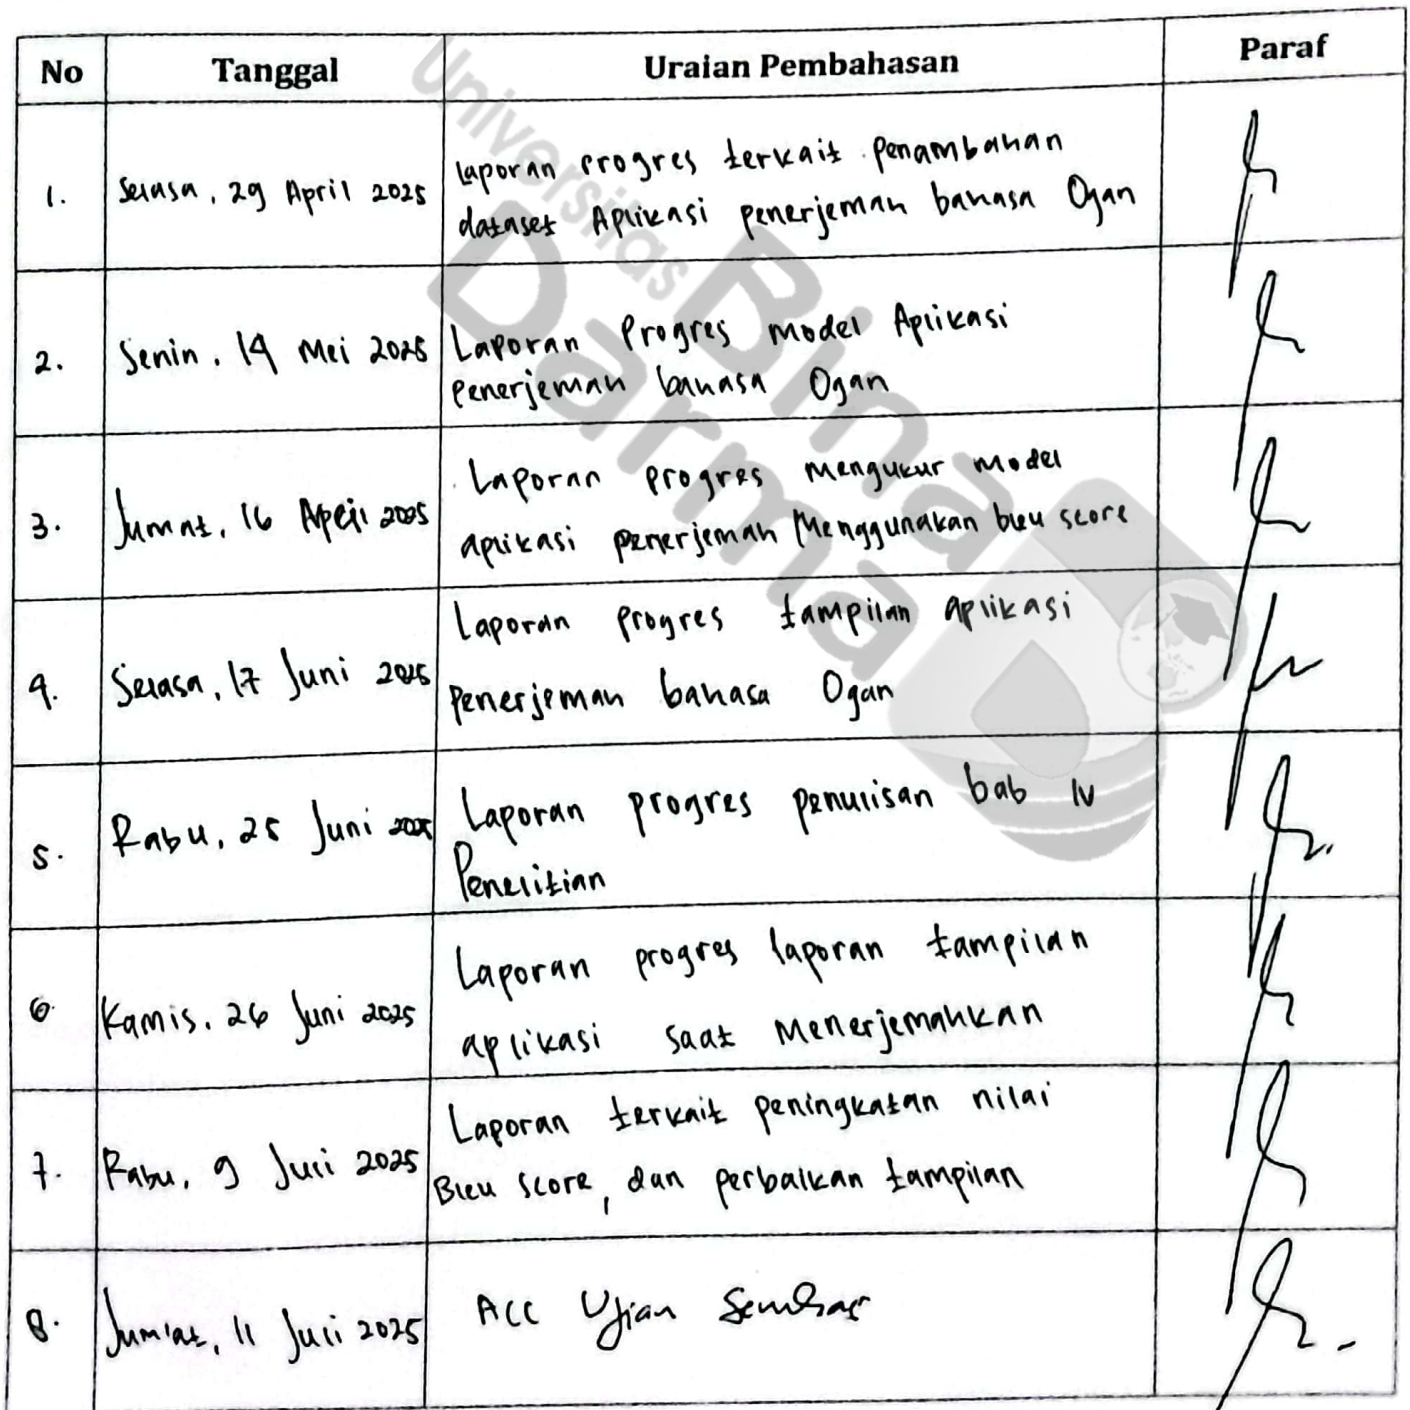 No Tanggal Uraian Pembahasan Paraf
1. Selasa, 29 April 2025 Laporan Progres terkait penambahan
dataset Aplikasi penerjemah bahasa Ogan
2. Senin, 14 Mei 2025 Laporan Progres model Aplikasi
penerjemah bahasa Ogan
3. Jumat, 16 April 2025 Laporan progres mengukur model
aplikasi penerjemah Menggunakan bleu score
4. Selasa, 17 Juni 2025 Laporan progres tampilan aplikasi
penerjemah bahasa Ogan
5. Rabu, 25 Juni 2025 Laporan progres penulisan bab IV
Penelitian
6. Kamis, 26 Juni 2025 Laporan progres laporan tampilan
aplikasi saat Menerjemahkan
7. Rabu, 9 Juli 2025 Laporan terkait peningkatan nilai
Bleu score, dan perbaikan tampilan
8. Jum'at, 11 Juli 2025 ACC Ujian
Universitas
Bina
Darma